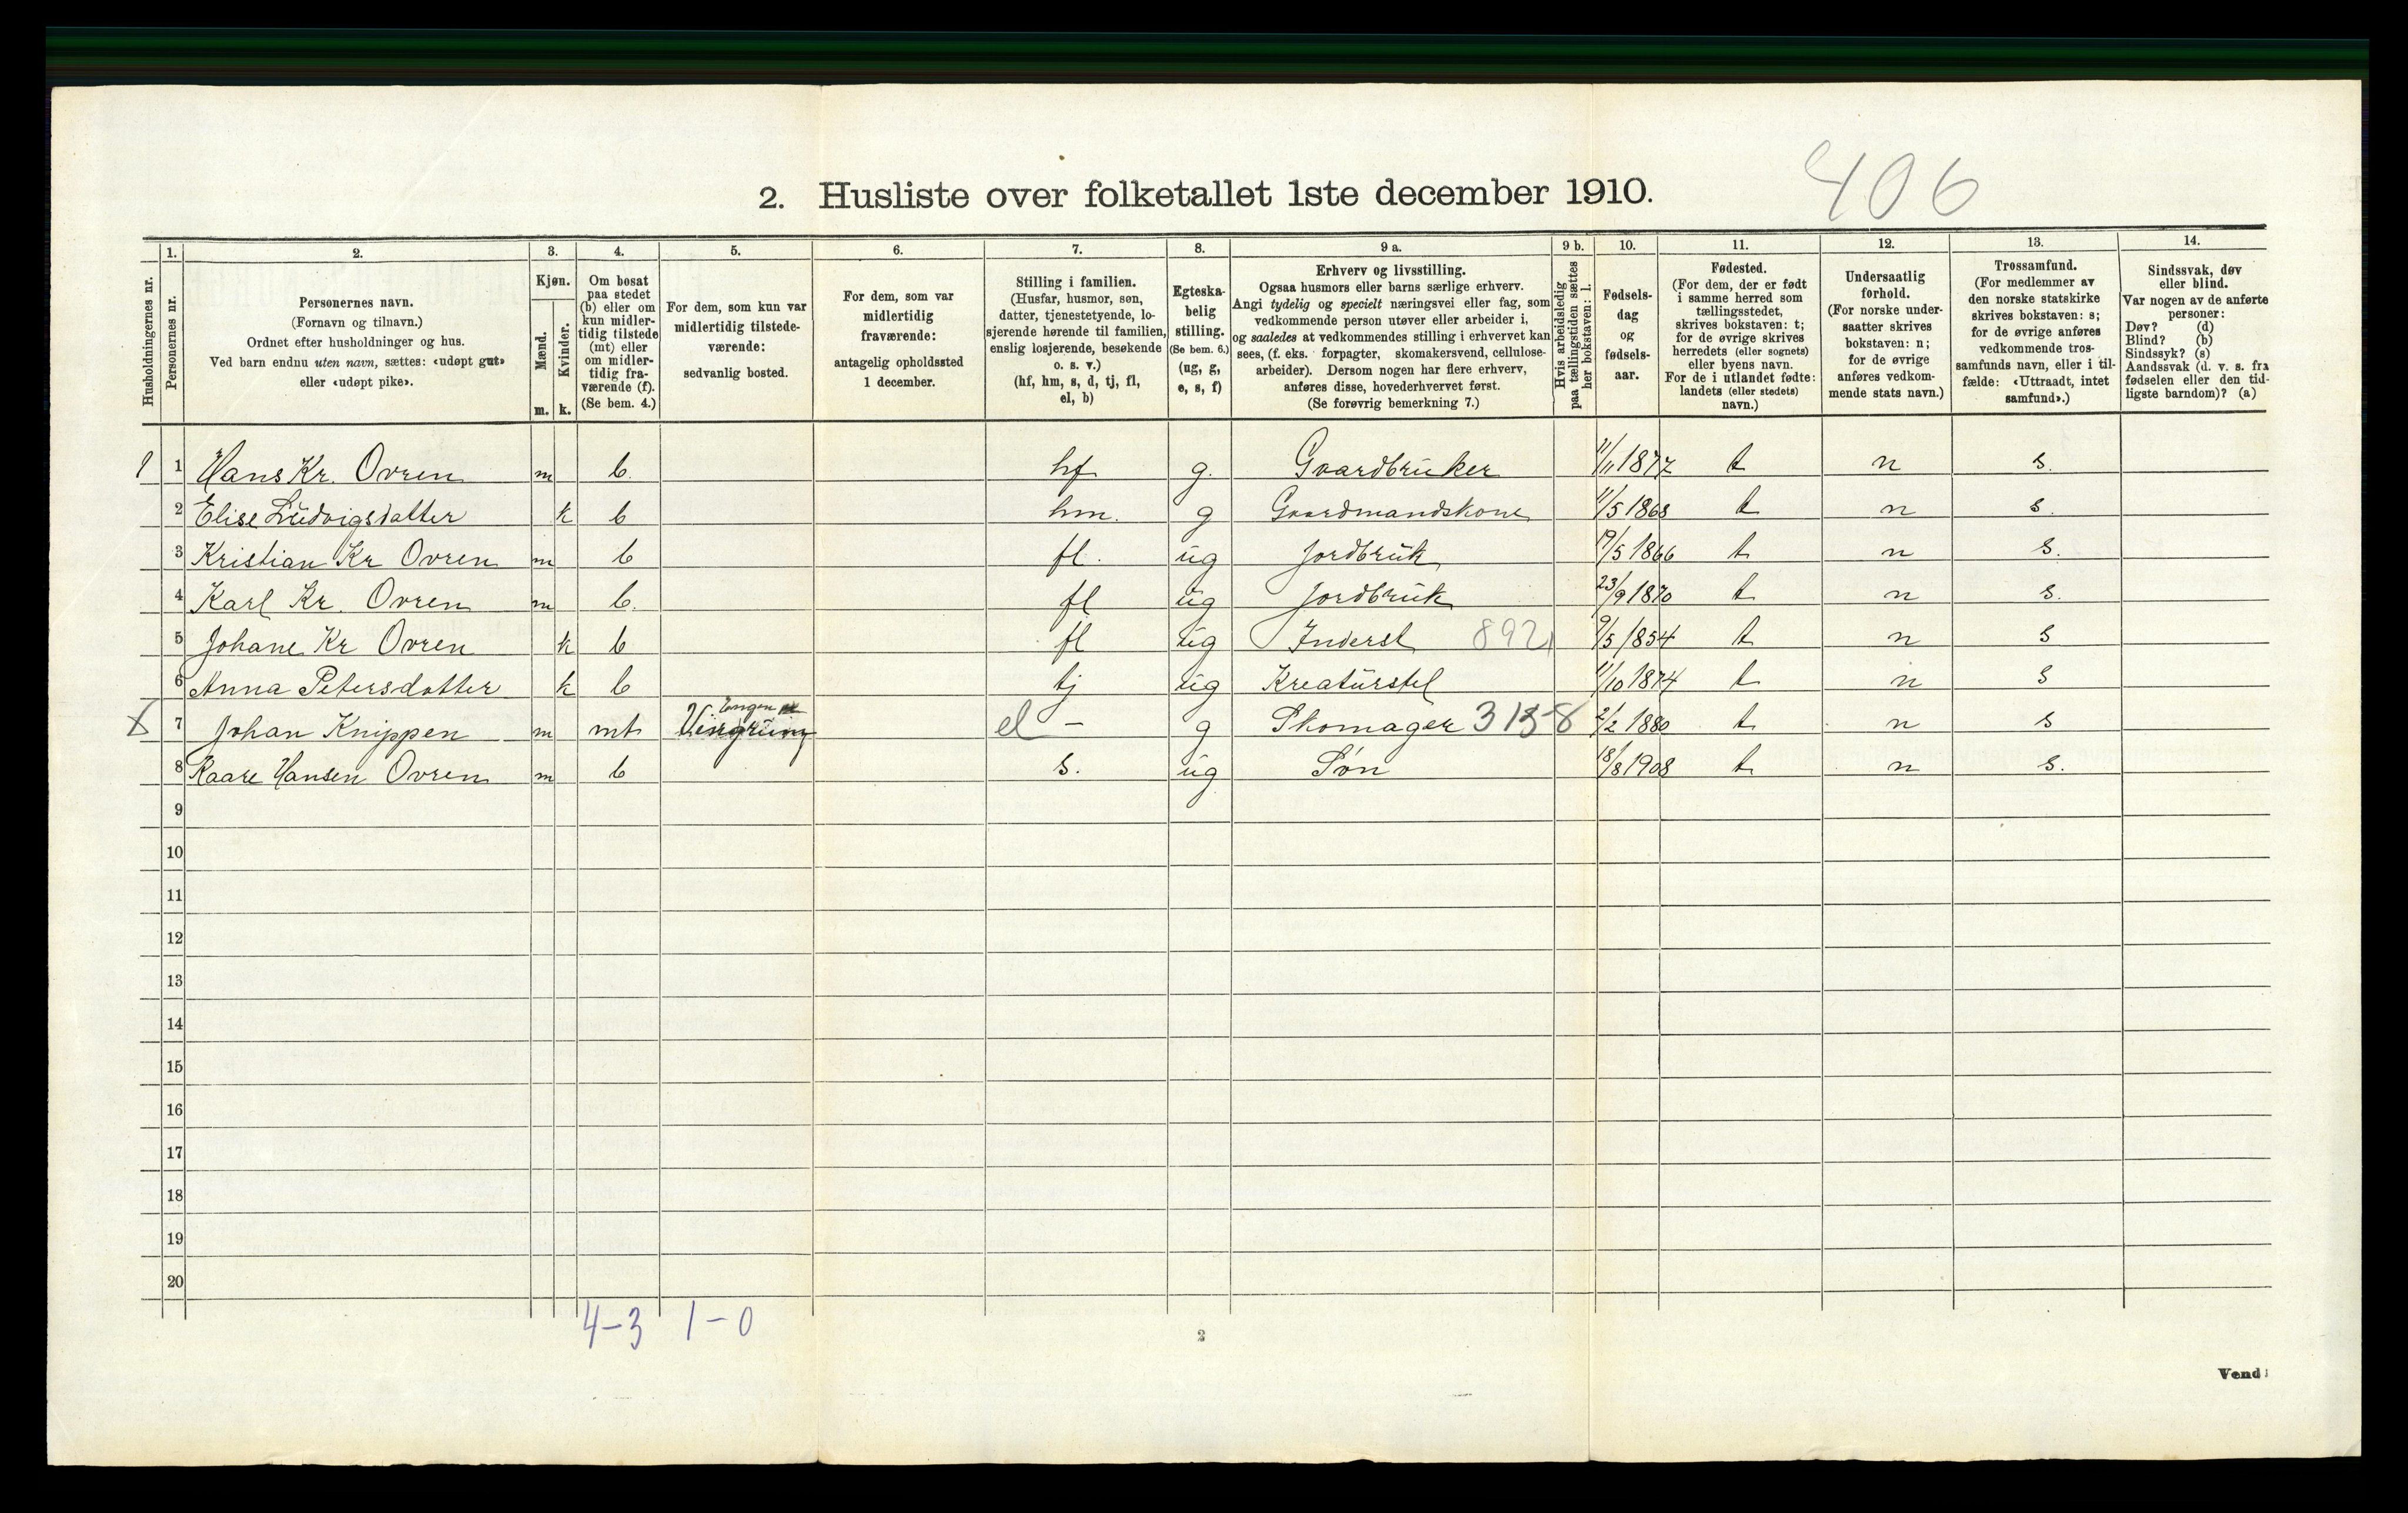 406
2. Husliste over folketallet 1ste december 1910.
Husholdningernes nr.
1.
Personernes nr.
2.
Personernes navn.
(Fornavn og tilnavn.)
Ordnet efter husholdninger og hus.
Ved barn endnu uten navn, sættes: «udøpt gut»
eller «udøpt pike».
3.
Kjøn.
Mænd.
Kvinder.
m.
k.
4.
Om bosat
paa stedet
(b) eller om
kun midler-
tidig tilstede
(mt) eller
om midler-
tidig fra-
værende (f).
(Se bem. 4.)
5.
For dem, som kun var
midlertidig tilstede-
værende:
sedvanlig bosted.
6.
For dem, som var
midlertidig
fraværende:
antagelig opholdssted
1 december.
7.
Stilling i familien.
(Husfar, husmor, søn,
datter, tjenestetyende, lo-
sjerende hørende til familien,
enslig losjerende, besøkende
o. s. v.)
(hf, hm, s, d, tj, fl,
el, b)
8.
Egteska-
belig
stilling.
(Se bem. 6.)
(ug, g,
e, s, f)
9 a.
Erhverv og livsstilling.
Ogsaa husmors eller barns særlige erhverv.
Angi tydelig og specielt næringsvei eller fag, som
vedkommende person utøver eller arbeider i,
og saaledes at vedkommendes stilling i erhvervet kan
sees, (f. eks. forpagter, skomakersvend, cellulose-
arbeider). Dersom nogen har flere erhverv,
anføres disse, hovederhvervet først.
(Se forøvrig bemerkning 7.)
9 b.
Hvis arbeidsledig
paa tællingstiden sættes
her bokstaven: l.
10.
Fødsels-
dag
og
fødsels-
aar.
11.
Fødested.
(For dem, der er født
i samme herred som
tællingsstedet,
skrives bokstaven: t;
for de øvrige skrives
herredets (eller sognets)
eller byens navn.
For de i utlandet fødte:
landets (eller stedets)
navn.)
12.
Undersaatlig
forhold.
(For norske under-
saatter skrives
bokstaven: n;
for de øvrige
anføres vedkom-
mende stats navn.)
13.
Trossamfund.
(For medlemmer av
den norske statskirke
skrives bokstaven: s;
for de øvrige anføres
vedkommende tros-
samfunds navn, eller i til-
fælde: «Uttraadt, intet
samfund».)
14.
Sindssvak, døv
eller blind.
Var nogen av de anførte
personer:
Døv? (d)
Blind? (b)
Sindssyk? (s)
Aandssvak (d. v. s. fra
fødselen eller den tid-
ligste barndom)? (a)
1 1 Hans Kr. Ovren m b. hf g. Gaardbruker 11/11 1877 t n s.
2 Elise Ludvigsdatter k b hm. g Gaardmandskone 11/5 1868 t n s.
3 Kristian Kr Ovren m b fl. ug Jordbruk 19/5 1866 t n s.
4 Karl Kr. Ovren m b. fl ug Jordbruk 23/9 1870 t n s.
5 Johane Kr Ovren k b fl ug Inderst 892 9/5 1854 t n s
6 Anna Petersdatter k b tj ug Kreaturstel 11/10 1874 t n s
X 7 Johan Knippen m mt el - g Skomager 2/2 1880 t n s
8 Kaare Hansen Ovren m b s. ug Søn 18/8 1908 t n s.
9
10
11
12
13
14
15
16
17
18
19
20
4-3 1-0
2
Vend